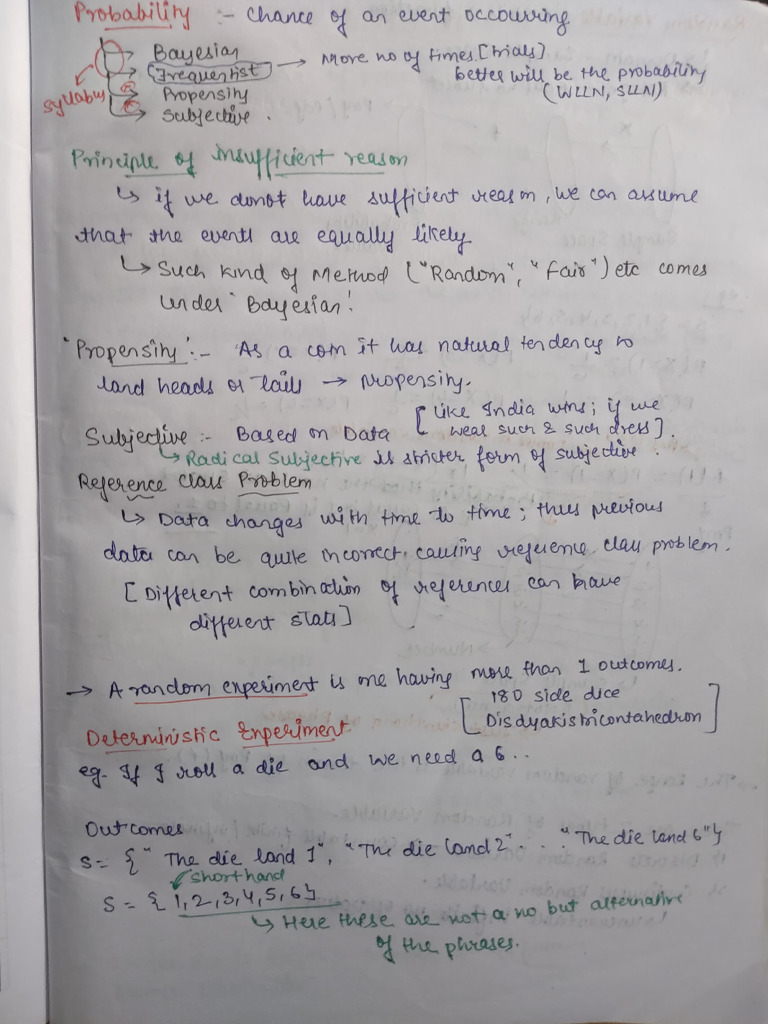 Probability :- Chance of an event occouring
Bayesian
Frequentist → More no of times [trials]
better will be the probability
(WLLN, SLLN)
syllabus
Propensity
Subjective.
Principle of insufficient reason
↳ if we donot have sufficient reason, we can assume
that the events are equally likely
↳ Such kind of Method ("Random", "Fair") etc comes
under "Bayesian".
'Propensity' :- As a coin it has natural tendency to
land heads or tails → propensity.
Subjective :- Based on Data [Like India wins; if we
wear such & such dress].
↳ Radical Subjective is stricter form of subjective.
Reference Class Problem
↳ Data changes with time to time; thus previous
data can be quite incorrect causing reference class problem.
[Different combination of references can have
different stats]
→ A random experiment is one having more than 1 outcomes.
[180 side dice
Disdyakistricontahedron]
Deterministic Experiment
eg. If I roll a die and we need a 6..
Outcomes
S = { "The die land 1", "The die land 2" . . . "The die land 6"}
shorthand
S = {1,2,3,4,5,6}
↳ Here these are not a no but alternative
of the phrases.